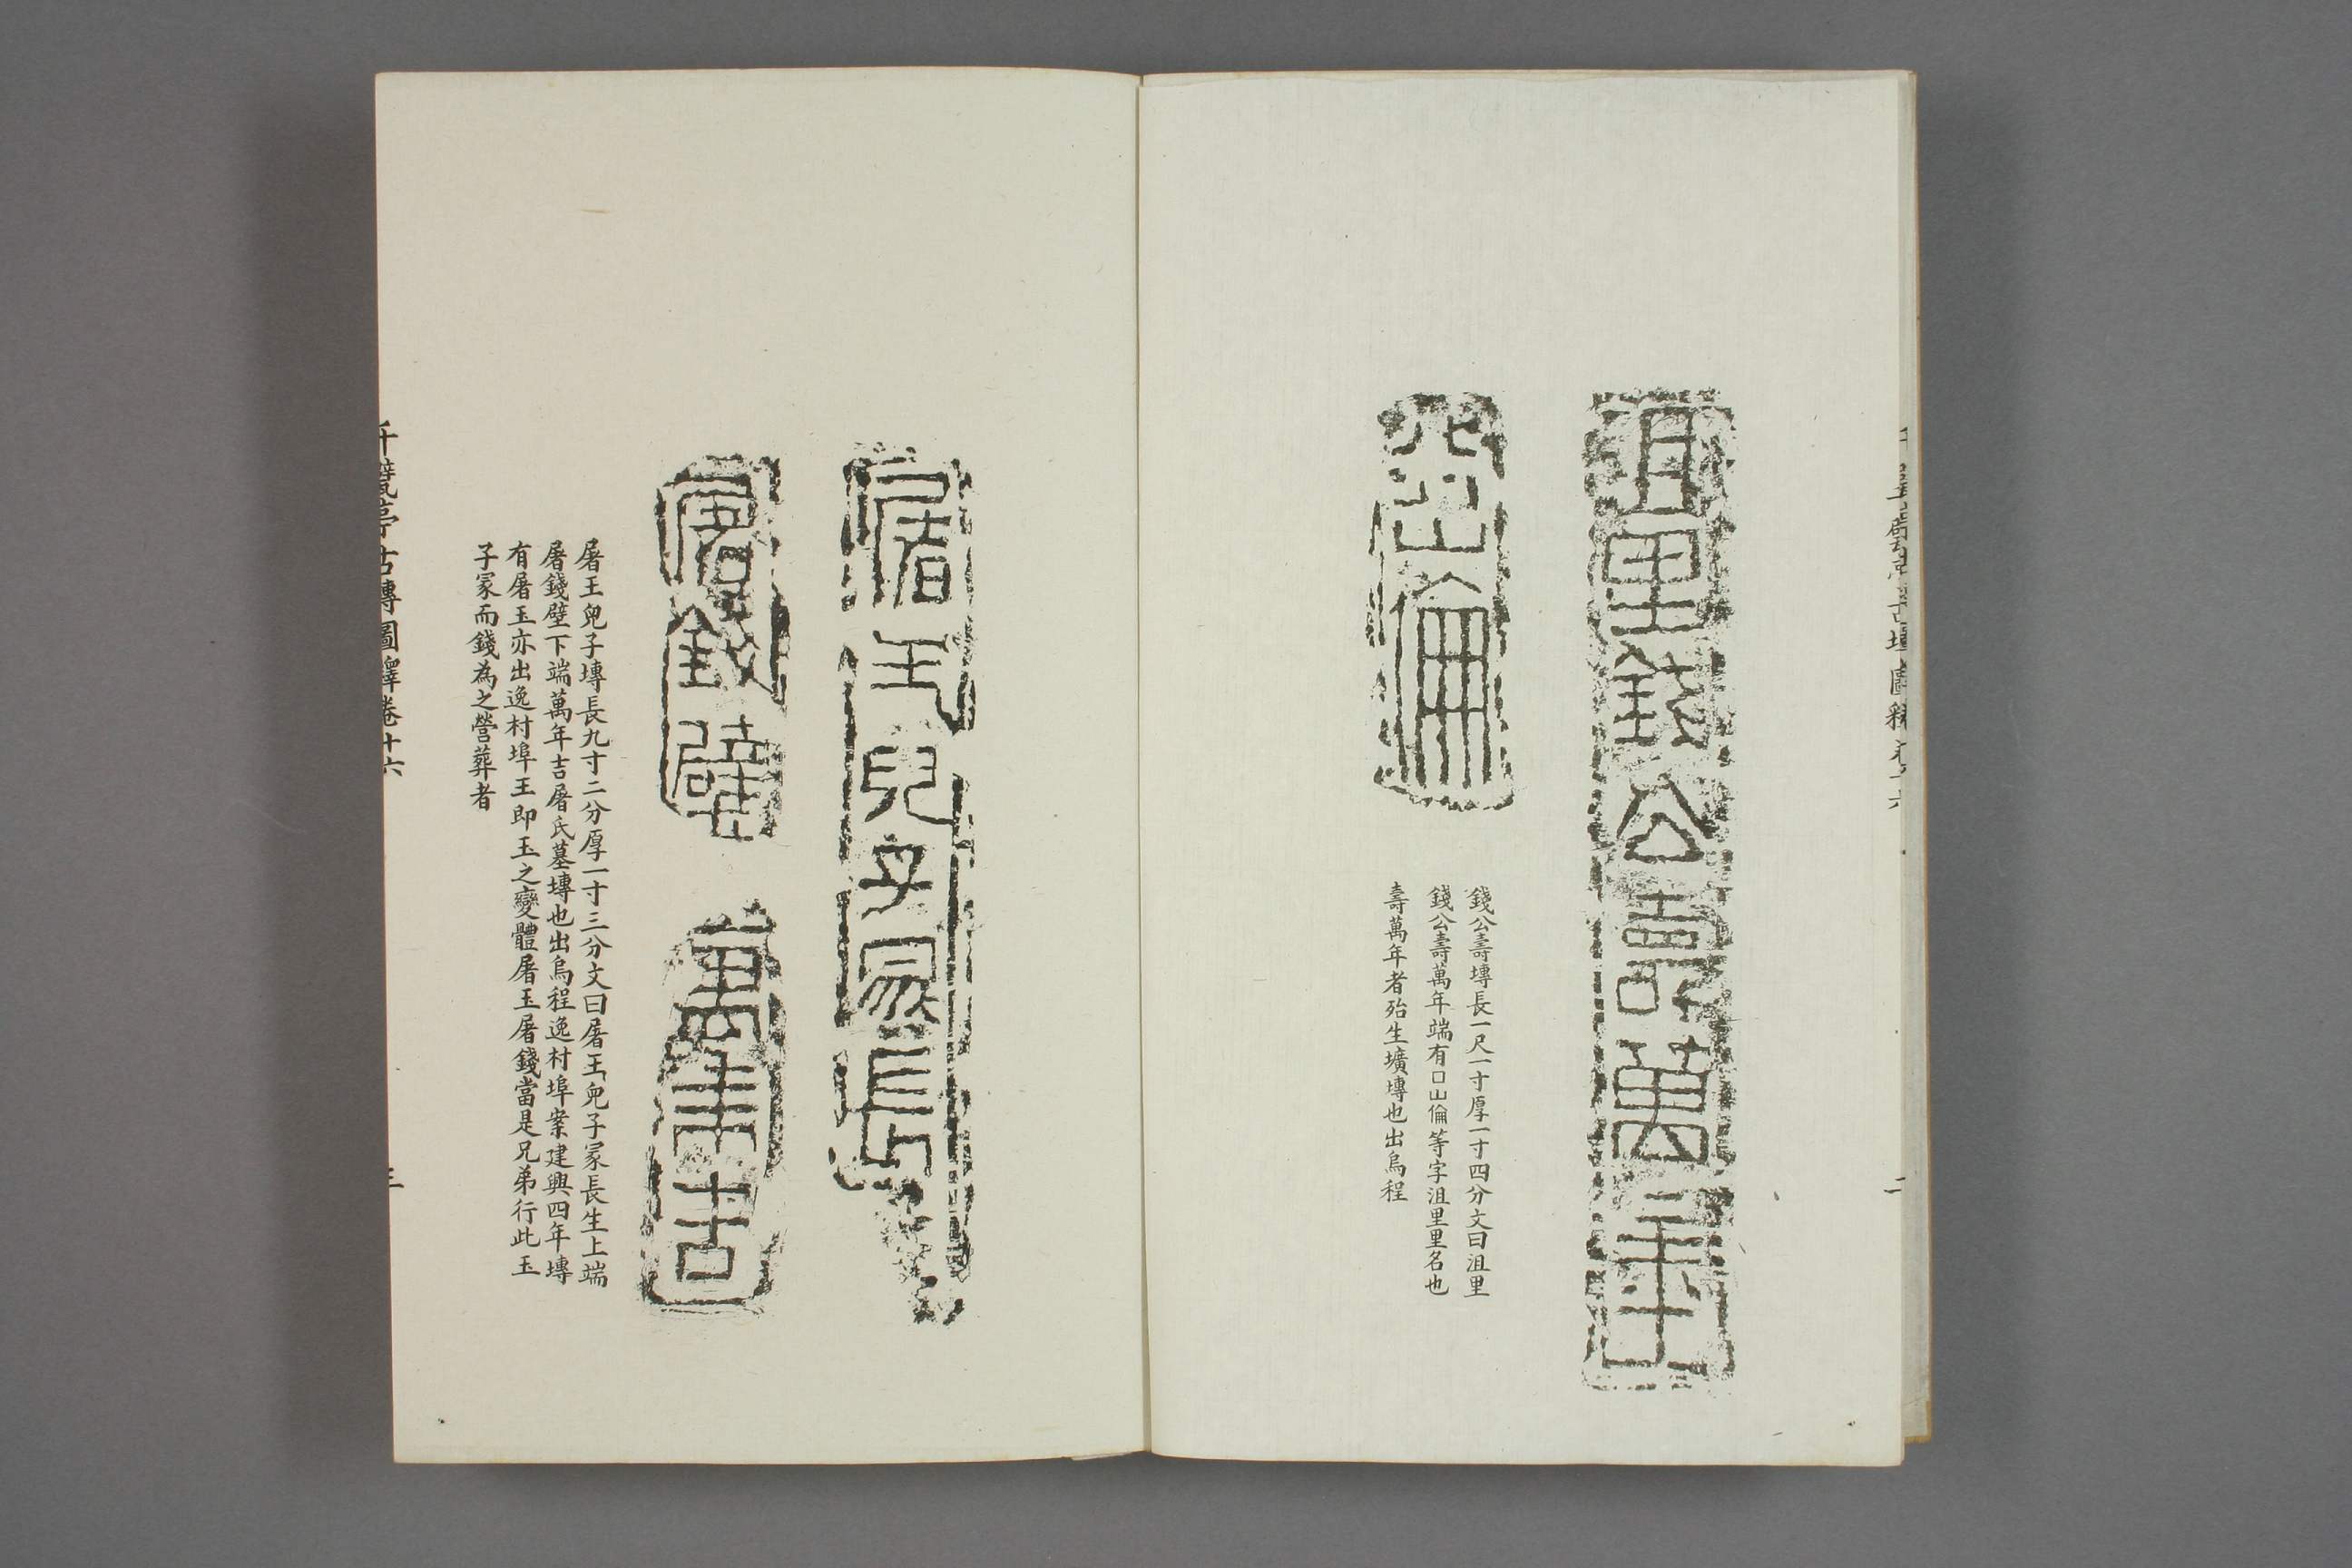 沮里錢公壽萬年
山倫
錢公壽塼長一尺一寸厚一寸四分文曰沮里
錢公壽萬年端有口山倫等字沮里里名也
壽萬年者殆生壙塼也出烏程
二
屠玉兒子冢長
屠錢壁
萬年吉
屠王兒子塼長九寸二分厚一寸三分文曰屠王兒子冢長生上端
屠錢壁下端萬年吉屠氏墓塼也出烏程逸村埠案建興四年塼
有屠玉亦出逸村埠王即玉之變體屠玉屠錢當是兄弟行此玉
子冢而錢為之營葬者
千甓亭古塼圖釋卷十六
三